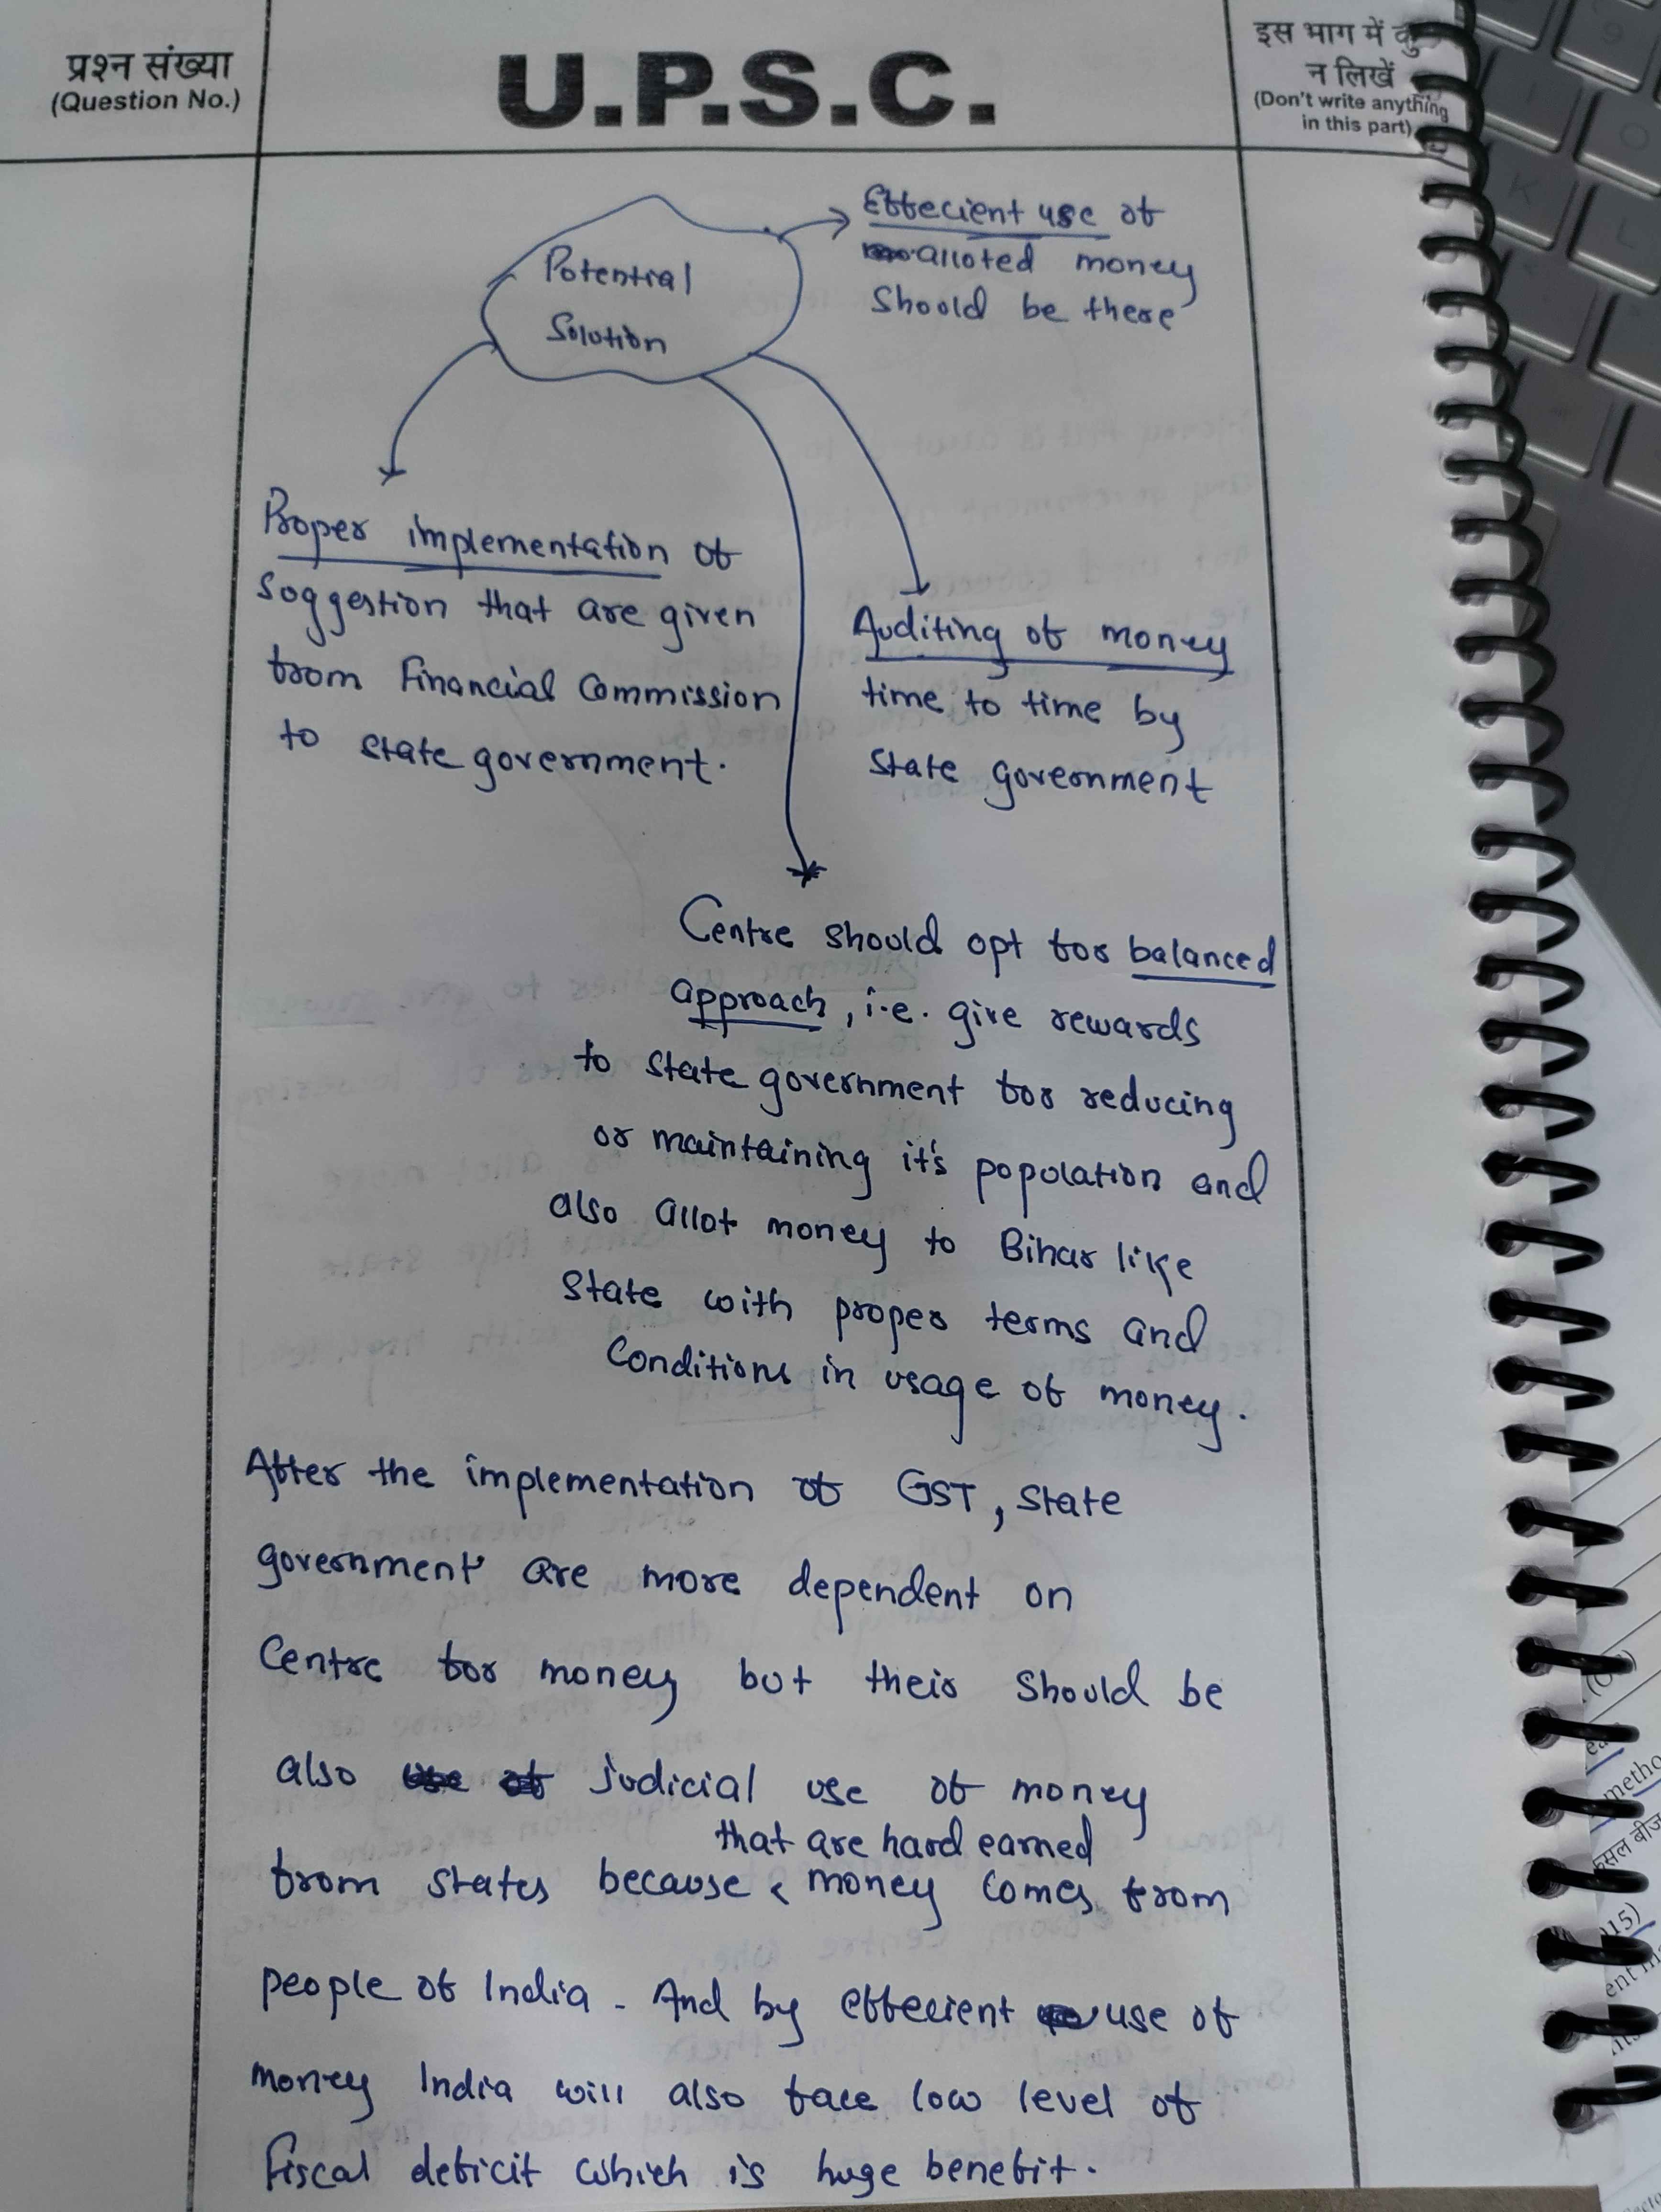 प्रश्न संख्या
(Question No.)
U.P.S.C.
इस भाग में कु
न लिखें
(Don't write anything
in this part)
Potential
Solution
Effecient use of
alloted money
should be there
Proper implementation of
suggestion that are given
from Financial Commission
to state government.
Auditing of money
time to time by
state government
Centre should opt for balanced
approach, i.e. give rewards
to state government for reducing
or maintaining it's population and
also allot money to Bihar like
state with proper terms and
conditions in usage of money.
After the implementation of GST, state
government are more dependent on
Centre for money but their should be
also use of judicial use of money
that are hard earned
from states because money comes from
people of India. And by effecient use of
money India will also face low level of
fiscal deficit which is huge benefit.
metho
फसल बीज
15)